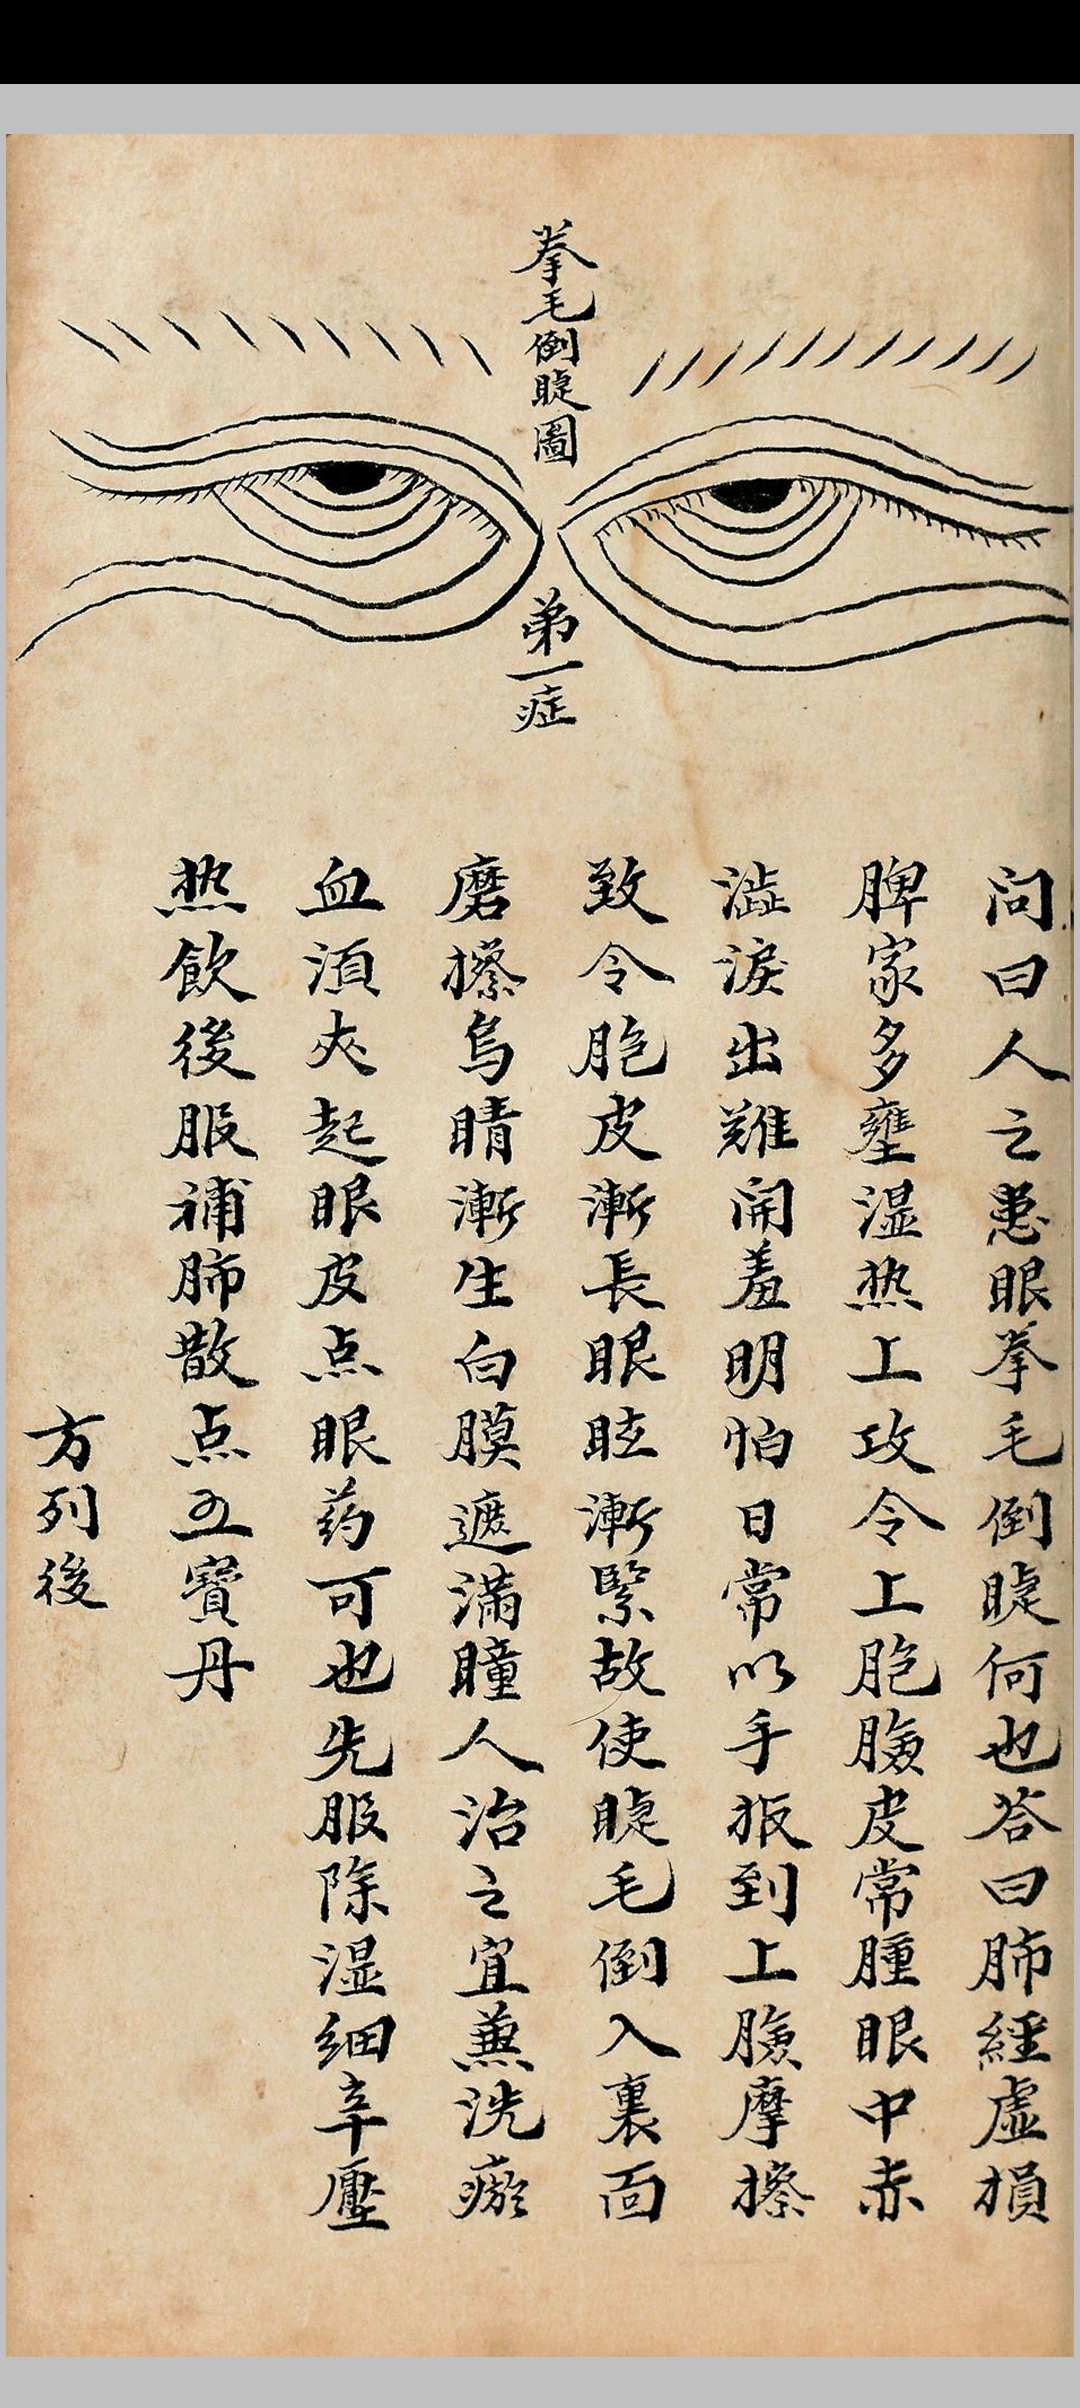 拳毛倒睫圖
弟一症
问曰人之患眼拳毛倒睫何也荅曰肺經虚損
脾家多壅湿热上攻令上胞臉皮常腫眼中赤
澁淚出难開羞明怕日常以手扳到上臉摩擦
致令胞皮漸長眼眩漸緊故使睫毛倒入裏面
磨擦烏睛漸生白膜遮滿瞳人治之宜兼洗瘀
血須夾起眼皮点眼药可也先服除湿细辛壓
热飲後服補肺散点五寳丹
方列後